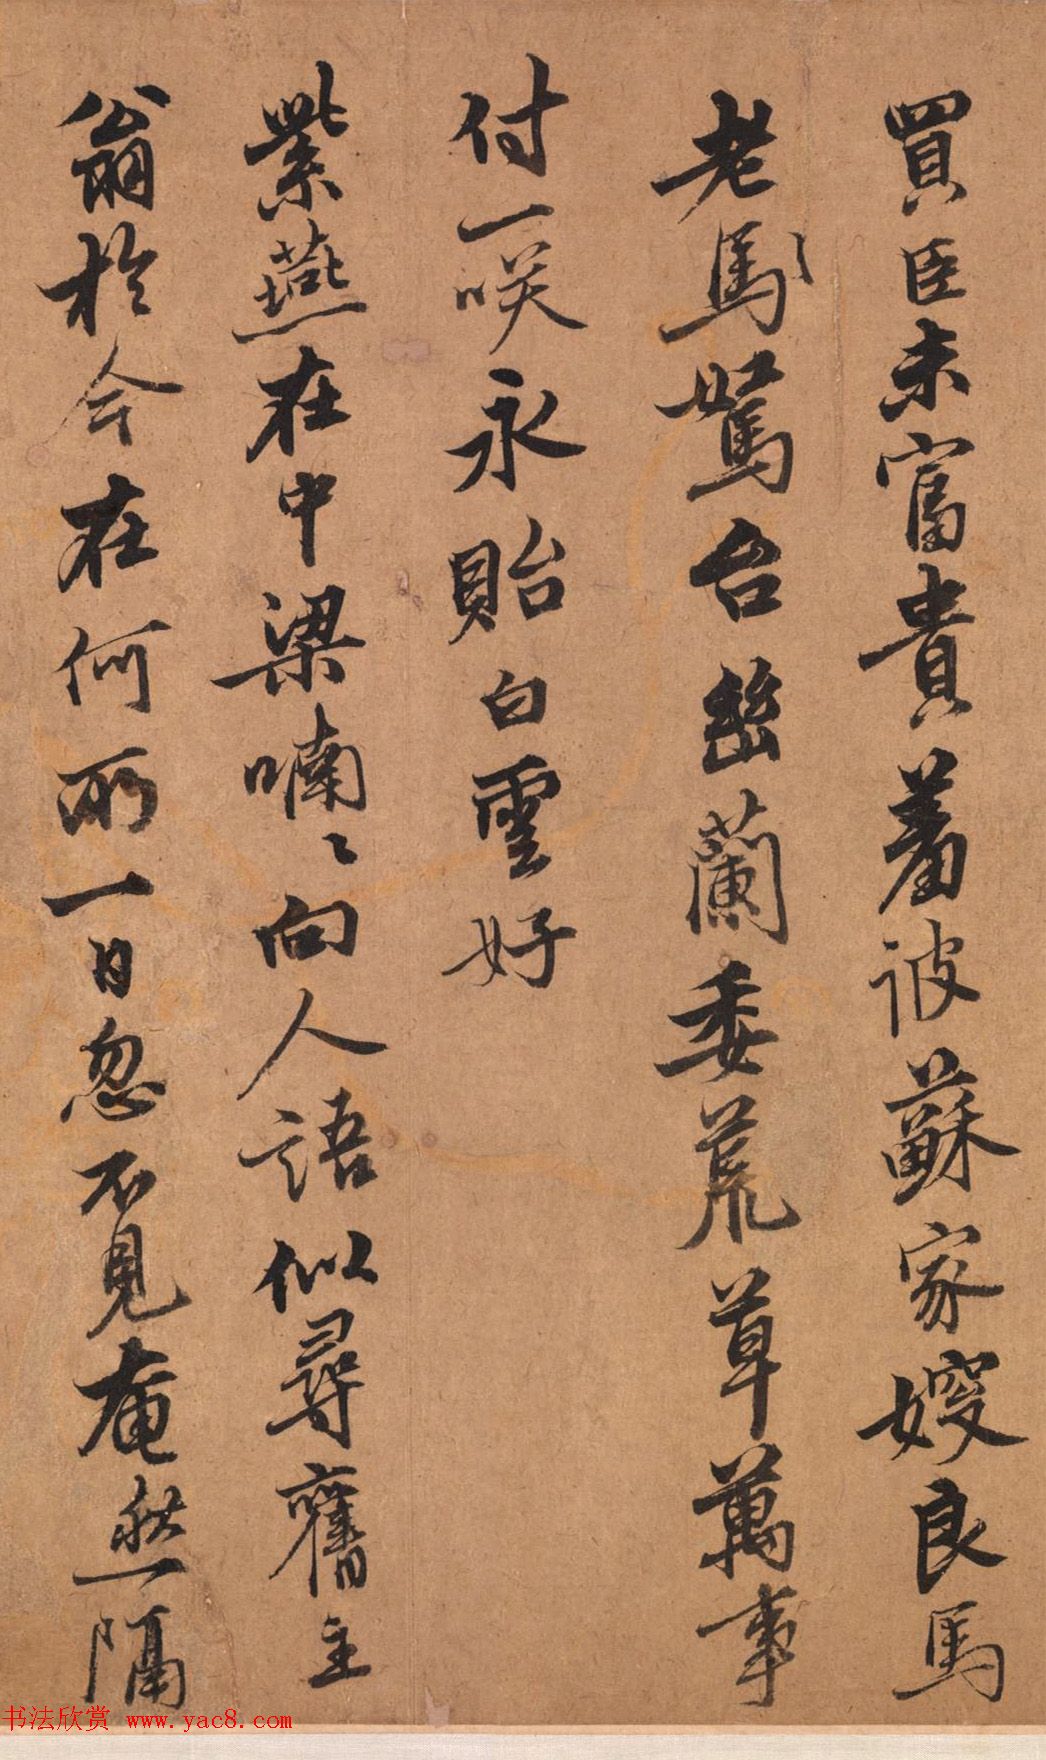 買臣未富貴羞彼蘇家嫂良馬
老馬駑台𡶶蘭委荒草萬事
付一咲永貽白雲好
紫燕在中梁喃〻向人語似尋舊主
翁於今在何所一日忽不見奄然隔
书法欣赏 www.yac8.com